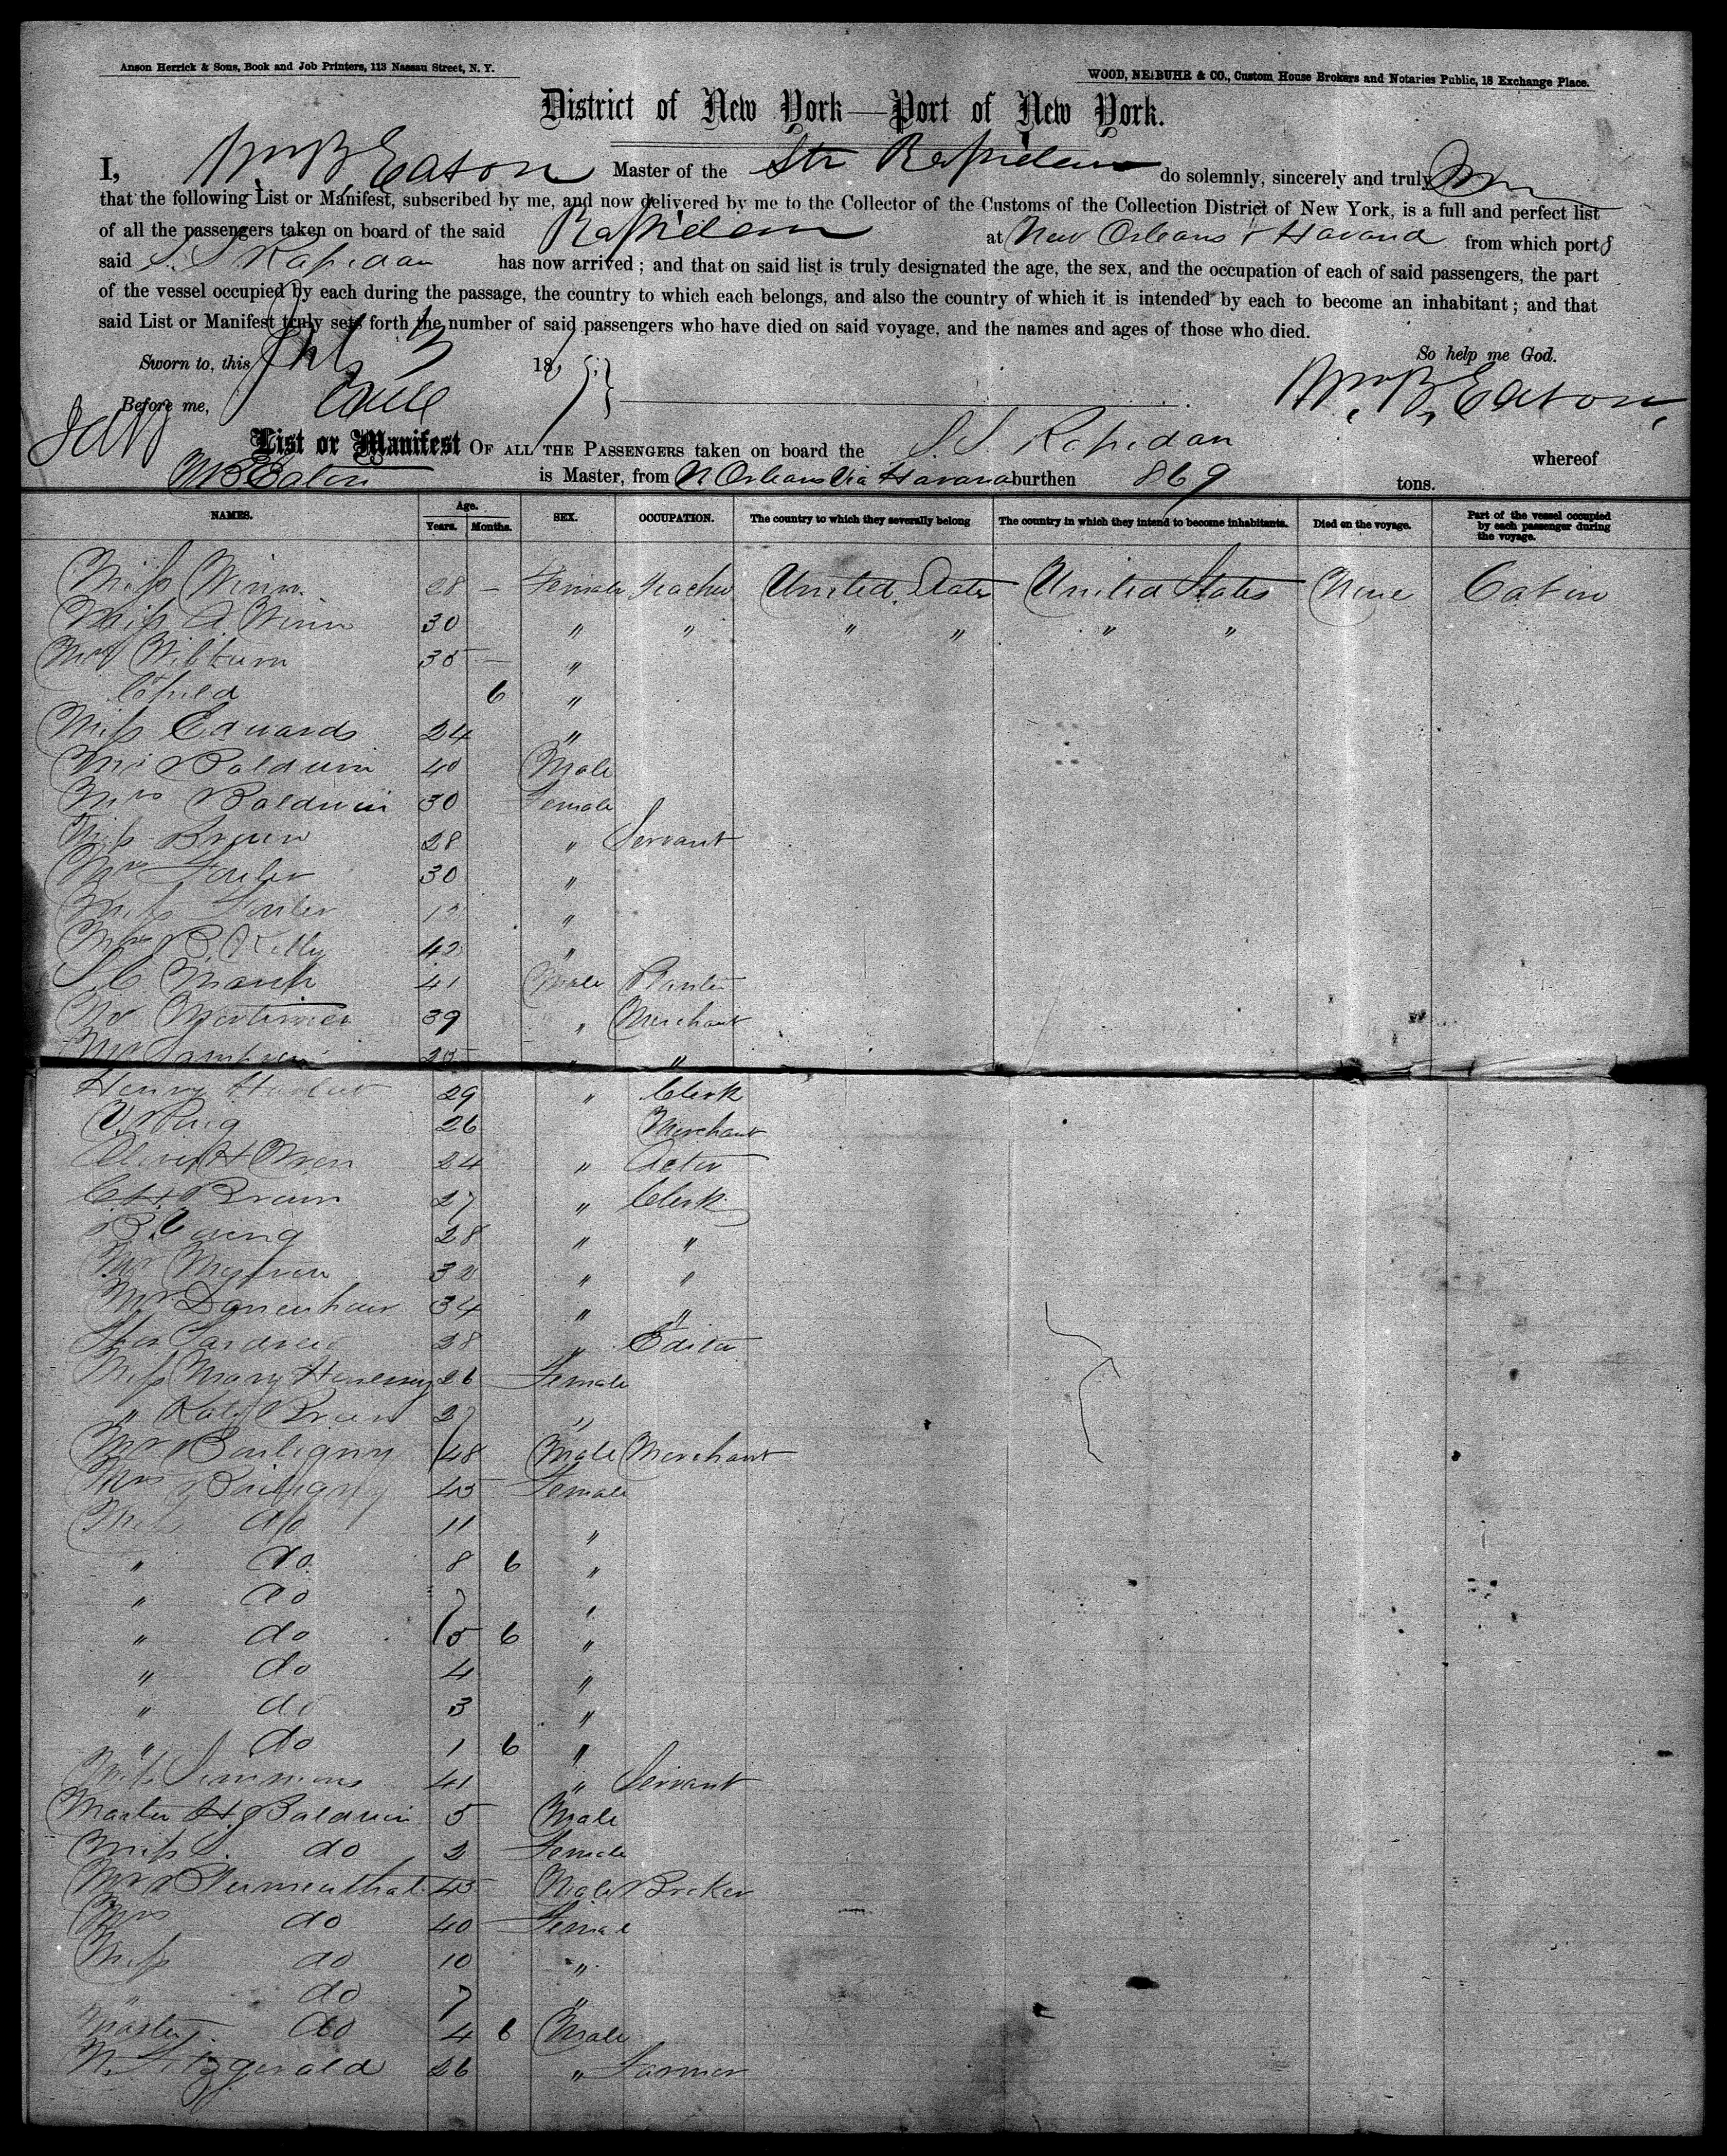 Anson Herrick & Sons, Book and Job Printers, 113 Nassau Street, N. Y.
WOOD, NEIBUHR & CO., Custom House Brokers and Notaries Public, 18 Exchange Place.
District of New York—Port of New York.
I, Wm B Eaton Master of the Str Rapidan do solemnly, sincerely and truly
that the following List or Manifest, subscribed by me, and now delivered by me to the Collector of the Customs of the Collection District of New York, is a full and perfect list
of all the passengers taken on board of the said Rapidan at New Orleans & Havana from which ports
said S. S Rapidan has now arrived ; and that on said list is truly designated the age, the sex, and the occupation of each of said passengers, the part
of the vessel occupied by each during the passage, the country to which each belongs, and also the country of which it is intended by each to become an inhabitant ; and that
said List or Manifest truly sets forth the number of said passengers who have died on said voyage, and the names and ages of those who died.
So help me God.
Sworn to, this 18
Wm. B. Eaton
Before me,
List or Manifest OF ALL THE PASSENGERS taken on board the S. S. Rapidan whereof
W B Eaton is Master, from N Orleans Via Havana burthen 869 tons.
NAMES. Age. Years. Months. SEX. OCCUPATION. The country to which they severally belong The country in which they intend to become inhabitants. Died on the voyage. Part of the vessel occupied by each passenger during the voyage.
Miss 28 — Female Teacher United States United States None Cabin
Miss A 30 " " " " " "
35 — "
Child 6 "
Miss Edwards 24 "
Mr Baldwin 40 Male
Mrs Baldwin 30 Female
Miss Brown 28 " Servant
Mrs 30 "
Miss "
Mrs B. Kelly 42 "
S. C. March 41 Male Planter
Mr Mortimer 39 " Merchant
Mr 25 " "
Henry 29 " Clerk
26 Merchant
Oliver Wren 24 " Actor
C. H. Brown 27 " Clerk
28 " "
Mr 32 " "
Mr 34 " "
28 " Editor
Miss Mary 26 Female
" Kate Brown 27 "
Mr Bouligny 48 Male Merchant
Mrs Bouligny 45 Female
Miss do 11 "
" do 8 6 "
" do 7 "
" do 5 6 "
" do 4 "
" do 3 "
" do 1 6 "
Miss Simmons 41 " Servant
Master H. Baldwin 5 Male
Miss S. do 2 Female
Mr 45 Male Broker
Mrs do 40 Female
Miss do 10 "
" do 7 "
Master do 4 6 Male
Fitzgerald 26 " Farmer